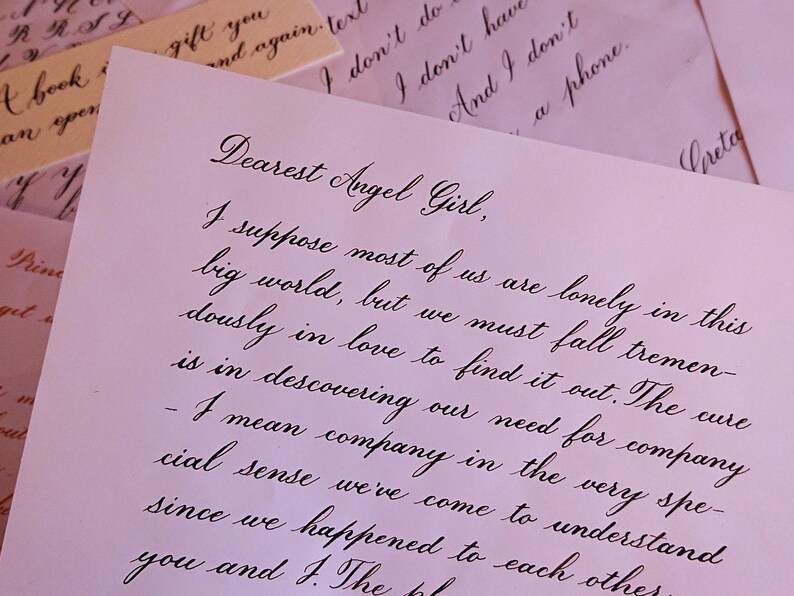 R R S L
A book is a gift you
an open and again.
text
I don't do
I don't have
And I don't
a phone.
Greta
Dearest Angel Girl,
I suppose most of us are lonely in this
big world, but we must fall tremen-
dously in love to find it out. The cure
is in descovering our need for company
- I mean company in the very spe-
cial sense we've come to understand
since we happened to each other,
you and I. The
get